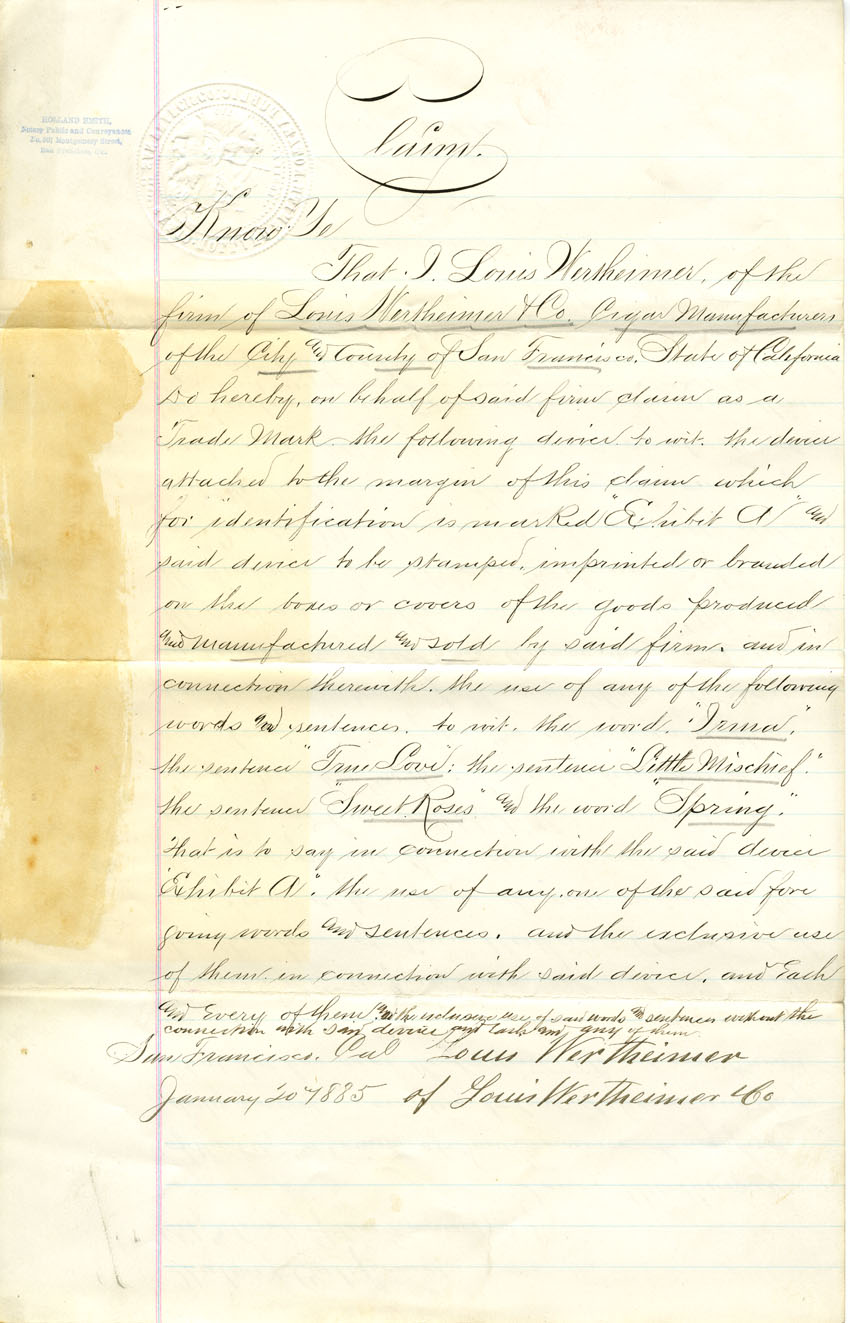 HOLLAND SMITH,
Notary Public and Conveyancer
No. 507 Montgomery Street,
San Francisco, Cal.
Claim.
Know Ye
That I. Louis Wertheimer, of the
firm of Louis Wertheimer & Co. Cigar Manufacturers
of the City and County of San Francisco, State of California
Do hereby, on behalf of said firm claim as a
Trade Mark the following device to wit. the device
attached to the margin of this claim which
for identification is marked "Exhibit A" and
said device to be stamped, imprinted or branded
on the boxes or covers of the goods produced
and manufactured and sold by said firm. and in
connection therewith. the use of any of the following
words and sentences. to wit. the word. "Irma".
the sentence "True Love": the sentence "Little Mischief".
the sentence "Sweet Roses" and the word "Spring."
that is to say in connection with the said device
"Exhibit A". the use of any one of the said fore
going words and sentences. and the exclusive use
of them in connection with said device. and Each
and Every of them. with exclusive use of said words and sentences without the
connection with said device and each and any of them.
San Francisco. Cal Louis Wertheimer
January 20 1885 of Louis Wertheimer & Co